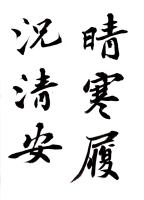 晴寒履
況清安